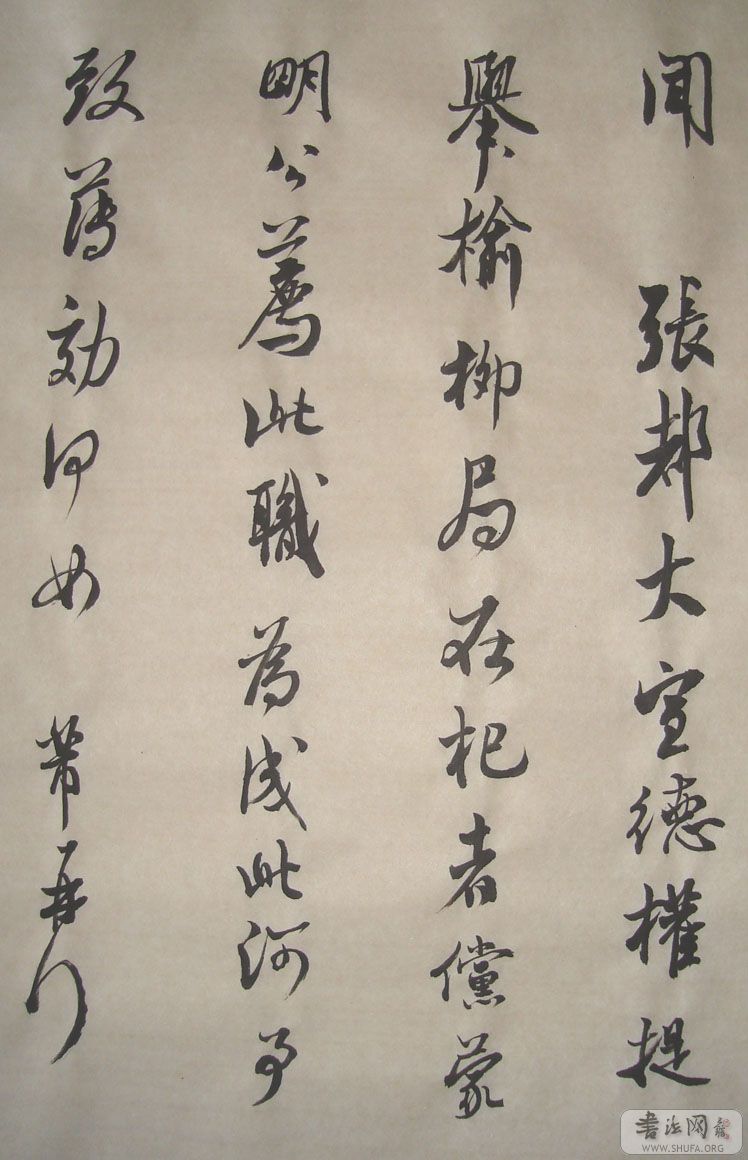 聞 張都大宣德權提
舉榆柳局在杞者儻蒙
明公薦此職為成此河事
致薄効何如 芾再行
書法网
WWW.SHUFA.ORG